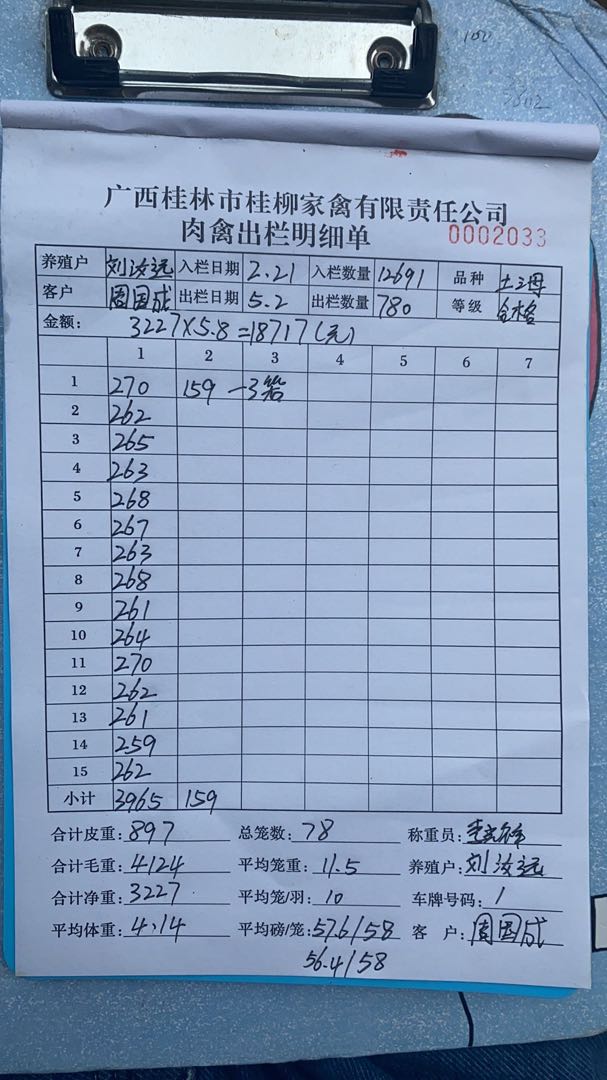 广西桂林市桂柳家禽有限责任公司
肉禽出栏明细单 0002033
养殖户 刘汝远 入栏日期 2.21 入栏数量 12691 品种 土2母
客户 周国成 出栏日期 5.2 出栏数量 780 等级 合格
金额: 3227×5.8=18717(元)
1 2 3 4 5 6 7
1 270 159 —3笼
2 262
3 265
4 263
5 268
6 267
7 263
8 268
9 261
10 264
11 270
12 262
13 261
14 259
15 262
小计 3965 159
合计皮重: 897 总笼数: 78 称重员:
合计毛重: 4124 平均笼重: 11.5 养殖户: 刘汝远
合计净重: 3227 平均笼/羽: 10 车牌号码: 1
平均体重: 4.14 平均磅/笼: 57.6/58 客 户: 周国成
56.4/58